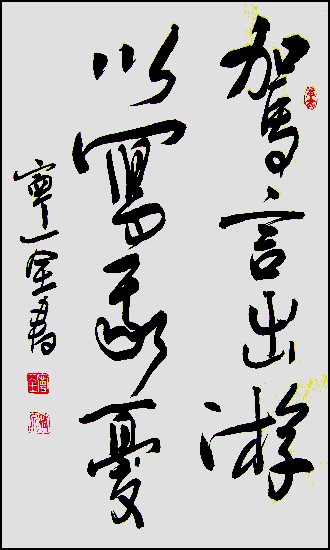 駕言出游
以寫我憂
寧一全書